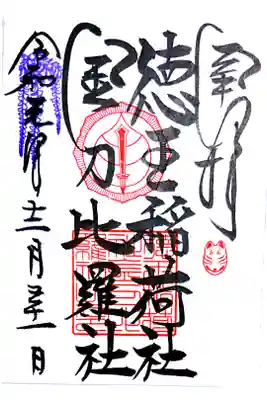 奉拝
徳王稲荷社
金刀比羅社
令和元年十二月廿一日